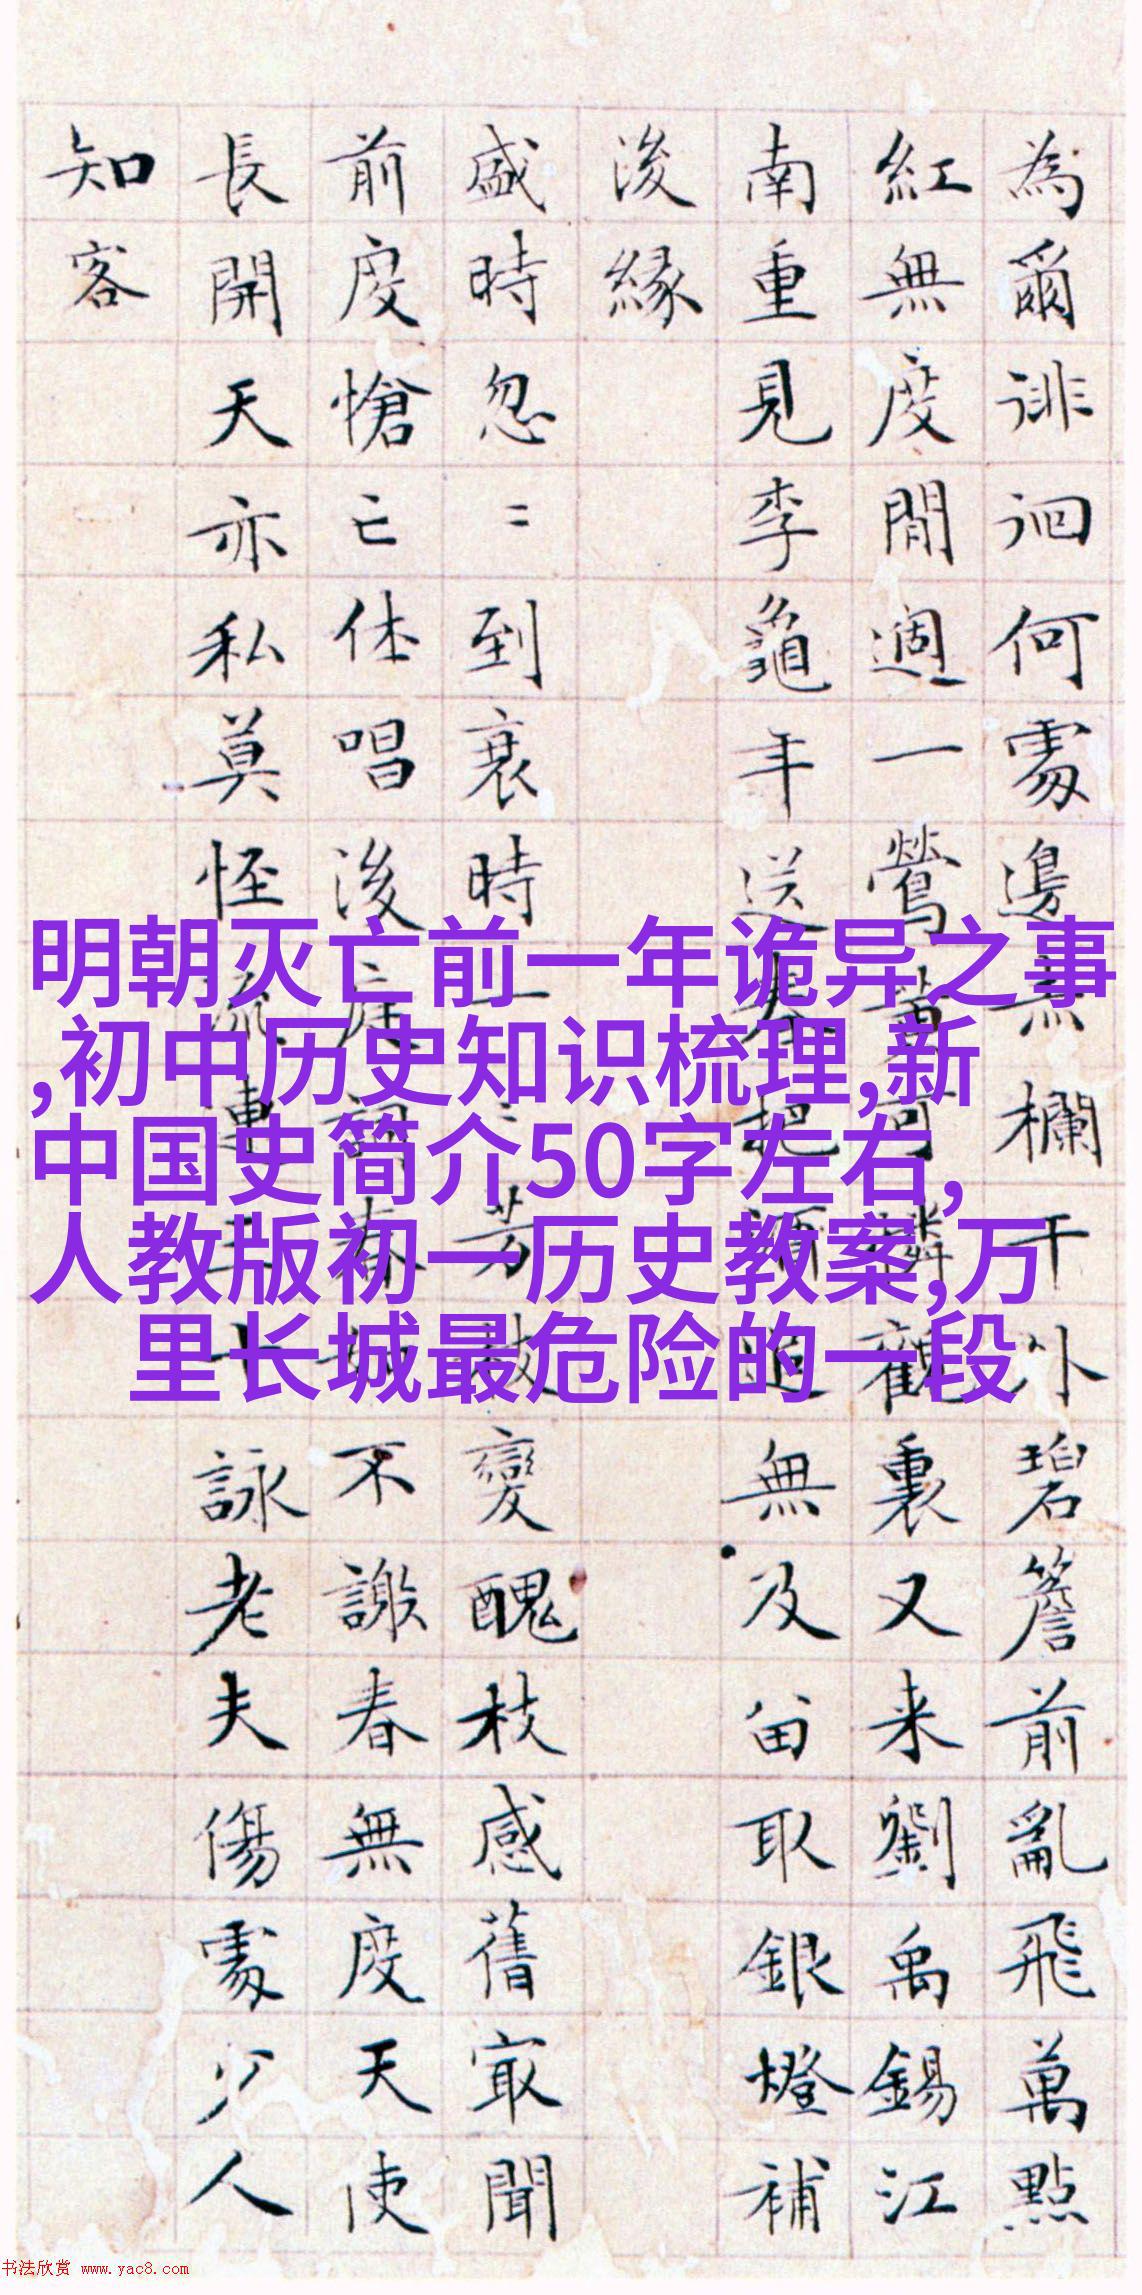 為爾徘徊何處邊赤欄干外碧簷前亂飛萬點
紅無度閒過一鶯黃可憐觀裏又来劉禹錫江
南重見李龜年送春把酒追無及留取銀燈補
後緣
盛時忽〻到衰時一〻芳枝變醜枝感舊最聞
前度愴亡休唱後庭詞春如不謝春無度天使
長開天亦私莫怪流連三十詠老夫傷處少人
知客
明朝灭亡前一年诡异之事
,初中历史知识梳理,新
中国史简介50字左右,
人教版初一历史教案,万
里长城最危险的一段
书法欣赏 www.yac8.com